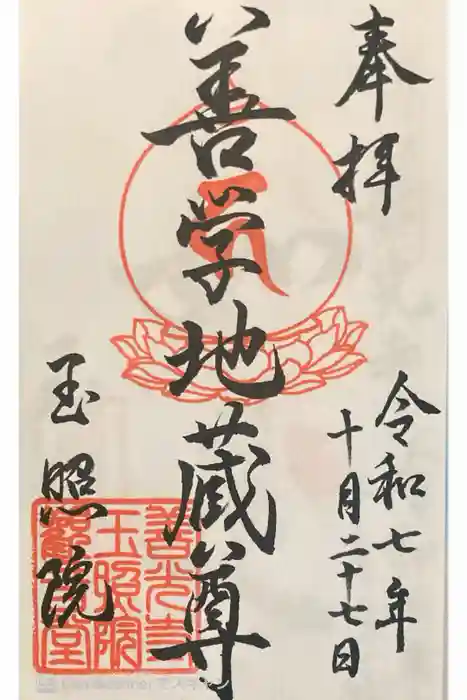 奉拝
令和七年
十月二十七日
善学地蔵尊
玉照院
善光寺
玉照院